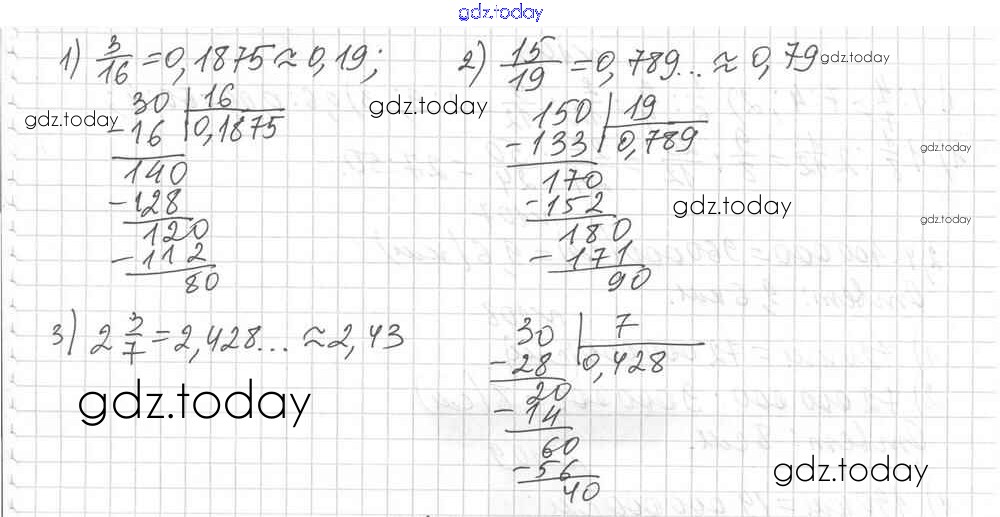 gdz.today
1) 3/16 = 0,1875 ≈ 0,19;
30 | 16
- 16 | 0,1875
140
- 128
120
- 112
80
2) 15/19 = 0,789... ≈ 0,79
150 | 19
- 133 | 0,789
170
- 152
180
- 171
90
3) 2 3/7 = 2,428... ≈ 2,43
30 | 7
- 28 | 0,428
20
- 14
60
- 56
40
gdz.today
gdz.today
gdz.today
gdz.today
gdz.today
gdz.today
gdz.today
gdz.today